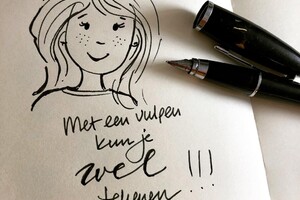 Met een vulpen
kun je
wel !!!
tekenen